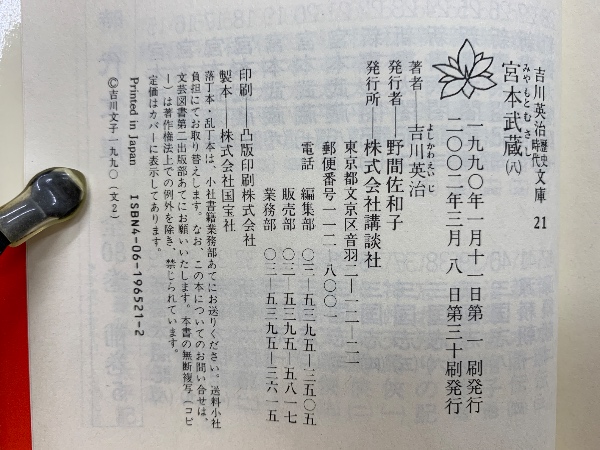 吉川英治歴史時代文庫 21
みやもとむさし
宮本武蔵(八)
一九九〇年一月十一日第一刷発行
二〇〇二年三月八日第三十刷発行
よしかわえいじ
著者——吉川英治
発行者——野間佐和子
発行所 株式会社講談社
東京都文京区音羽二—一二—二一
郵便番号一一二—八〇〇一
電話 編集部 〇三—五三九五—三五〇五
販売部 〇三—五三九五—五八一七
業務部 〇三—五三九五—三六一五
印刷——凸版印刷株式会社
製本——株式会社国宝社
落丁本・乱丁本は、小社書籍業務部あてにお送りください。送料小社
負担にてお取り替えします。なお、この本についてのお問い合せは、
文芸図書第二出版部あてにお願いいたします。本書の無断複写(コピ
ー)は著作権法上での例外を除き、禁じられています。
定価はカバーに表示してあります。
©吉川文子一九九〇(文2)
Printed in Japan
ISBN4-06-196521-2